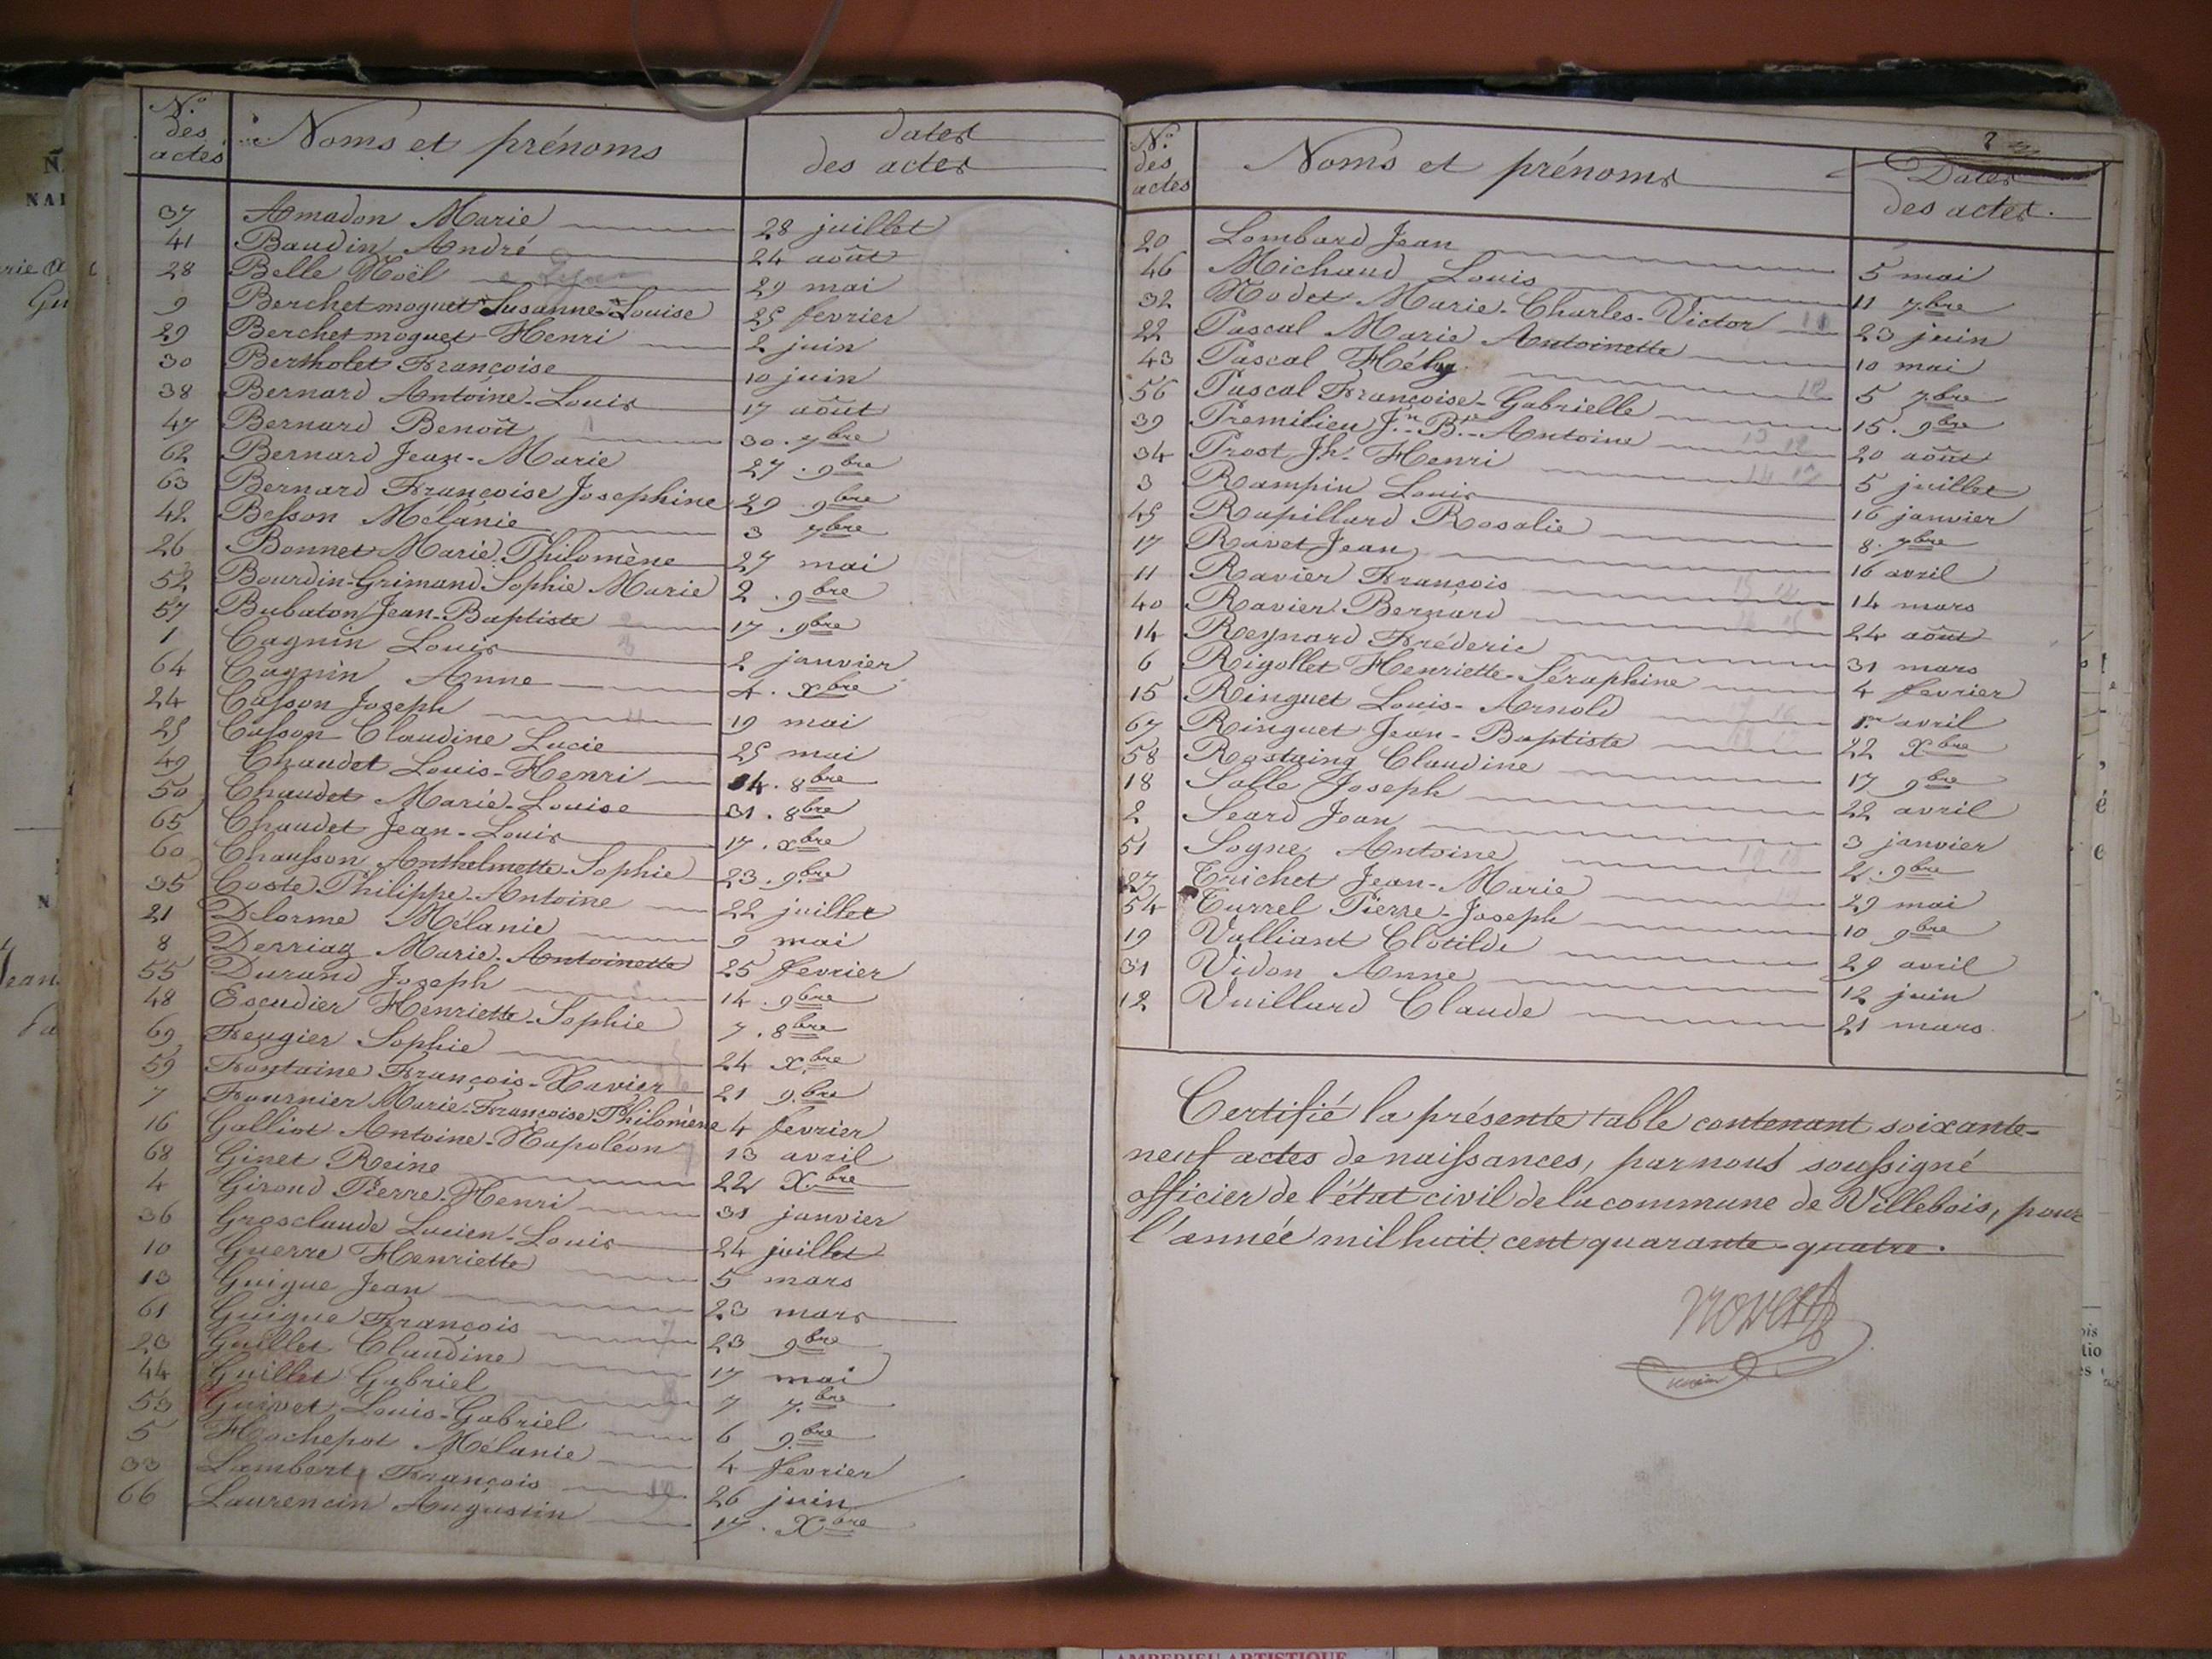 N.o des actes Noms et prénoms dates des actes
37 Amadon Marie 28 juillet
41 Baudin André 24 août
28 Belle Noël 29 mai
9 Berchetmoguet Susanne-Louise 25 fevrier
29 Berchetmoguet Henri 2 juin
30 Bertholet Françoise 10 juin
38 Bernard Antoine-Louis 17 août
47 Bernard Benoît 30. 7bre
62 Bernard Jean-Marie 27. 9bre
63 Bernard Françoise Josephine 29 9bre
42 Besson Mélanie 3 7bre
26 Bonnet Marie Philomène 27 mai
52 Bourdin-Grimand Sophie Marie 2. 9bre
57 Bubaton Jean-Baptiste 17. 9bre
1 Cagnin Louis 2 janvier
64 Cagnin Anne 4. Xbre
24 Casson Joseph 19 mai
25 Casson Claudine Lucie 25 mai
49 Chaudet Louis-Henri 14. 8bre
50 Chaudet Marie-Louise 31. 8bre
65 Chaudet Jean-Louis 17. Xbre
60 Chausson Anthelmette-Sophie 23. 9bre
35 Coste Philippe-Antoine 22 juillet
21 Delorme Mélanie 9 mai
8 Derriaz Marie-Antoinette 25 fevrier
55 Durand Joseph 14. 9bre
48 Escudier Henriette-Sophie 7. 8bre
69 Feugier Sophie 24 Xbre
59 Fontaine François-Xavier 21 9bre
7 Fournier Marie-Françoise Philomène 4 fevrier
16 Galliot Antoine-Napoléon 13 avril
68 Ginet Reine 22 Xbre
4 Girond Pierre-Henri 31 janvier
36 Grosclaude Lucien-Louis 24 juillet
10 Guerre Henriette 5 mars
13 Guigue Jean 23 mars
61 Guigue François 23 9bre
23 Guillet Claudine 17 mai
44 Guillet Gabriel 7 7bre
53 Guivet Louis-Gabriel 6 9bre
5 Hochepot Mélanie 4 fevrier
33 Lambert François 26 juin
66 Laurencin Augustin 17. Xbre
N.o des actes Noms et prénoms Dates des actes.
20 Lombard Jean 5 mai
46 Michaud Louis 11 7bre
32 Nodet Marie-Charles-Victor 23 juin
22 Pascal Marie Antoinette 10 mai
43 Pascal Hély 5 7bre
56 Pascal Françoise-Gabrielle 15. 9bre
39 Premilieu J.n B.te Antoine 20 août
34 Prost Jh. Henri 5 juillet
3 Rampin Louis 16 janvier
45 Rapillard Rosalie 8. 7bre
17 Ravet Jean 16 avril
11 Ravier François 14 mars
40 Ravier Bernard 24 août
14 Reynard Fréderic 31 mars
6 Rigollet Henriette-Séraphine 4 fevrier
15 Ringuet Louis-Arnold 1.er avril
67 Ringuet Jean-Baptiste 22 Xbre
58 Rostaing Claudine 17 9bre
18 Salle Joseph 22 avril
2 Seard Jean 3 janvier
51 Sogne Antoine 2. 9bre
27 Trichet Jean-Marie 29 mai
54 Turrel Pierre-Joseph 10 9bre
19 Valliant Clotilde 29 avril
31 Vidon Anne 12 juin
12 Vuillard Claude 21 mars
Certifié la présente table contenant soixante-
neuf actes de naissances, par nous soussigné
officier de l'état civil de la commune de Villebois, pour
l'année mil huit cent quarante-quatre.
AMBERIEU ARTISTIQUE